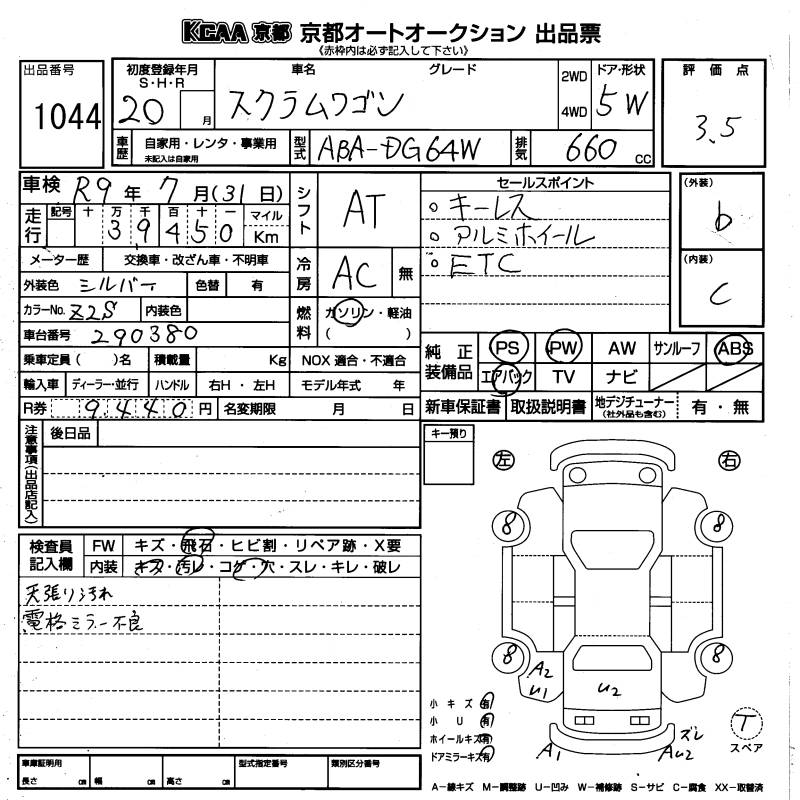 KCAA 京都 京都オートオークション 出品票
《赤枠内は必ず記入して下さい》
出品番号 1044
初度登録年月 S・H・R 20 月
車名 グレード スクラムワゴン
2WD 4WD ドア・形状 5W
評価点 3.5
車歴 自家用・レンタ・事業用 未記入は自家用
型式 ABA-DG64W
排気 660 CC
車検 R9年 7月(31日)
走行 記号 十 万 千 百 十 一 マイル Km 39450
メーター歴 交換車・改ざん車・不明車
外装色 シルバー 色替 有
カラーNo. Z2S 内装色
車台番号 290380
シフト AT
冷房 AC 無
燃料 ガソリン・軽油 ( )
セールスポイント
。キーレス
。アルミホイール
。ETC
(外装) b
(内装) C
乗車定員( )名 積載量 Kg NOX 適合・不適合
輸入車 ディーラー・並行 ハンドル 右H・左H モデル年式 年
R券 9,440円 名変期限 月 日
純正装備品 PS PW AW サンルーフ ABS
エアバック TV ナビ
新車保証書 取扱説明書 地デジチューナー (社外品も含む) 有・無
注意事項(出品店記入) 後日品
キー預り
左 右
8 8
8 8
検査員記入欄 FW キズ・飛石・ヒビ割・リペア跡・X要
内装 キズ・汚レ・コゲ・穴・スレ・キレ・破レ
天張り汚れ
電格ミラー不良
A2
U1
U2
小キズ 有
小U 有
ホイールキズ 有
ドアミラーキズ 有
A1
ズレ
AU2
T
スペア
車庫証明用 長さ cm 幅 cm 高さ cm 型式指定番号 類別区分番号
A-線キズ M-調整跡 U-凹み W-補修跡 S-サビ C-腐食 XX-取替済